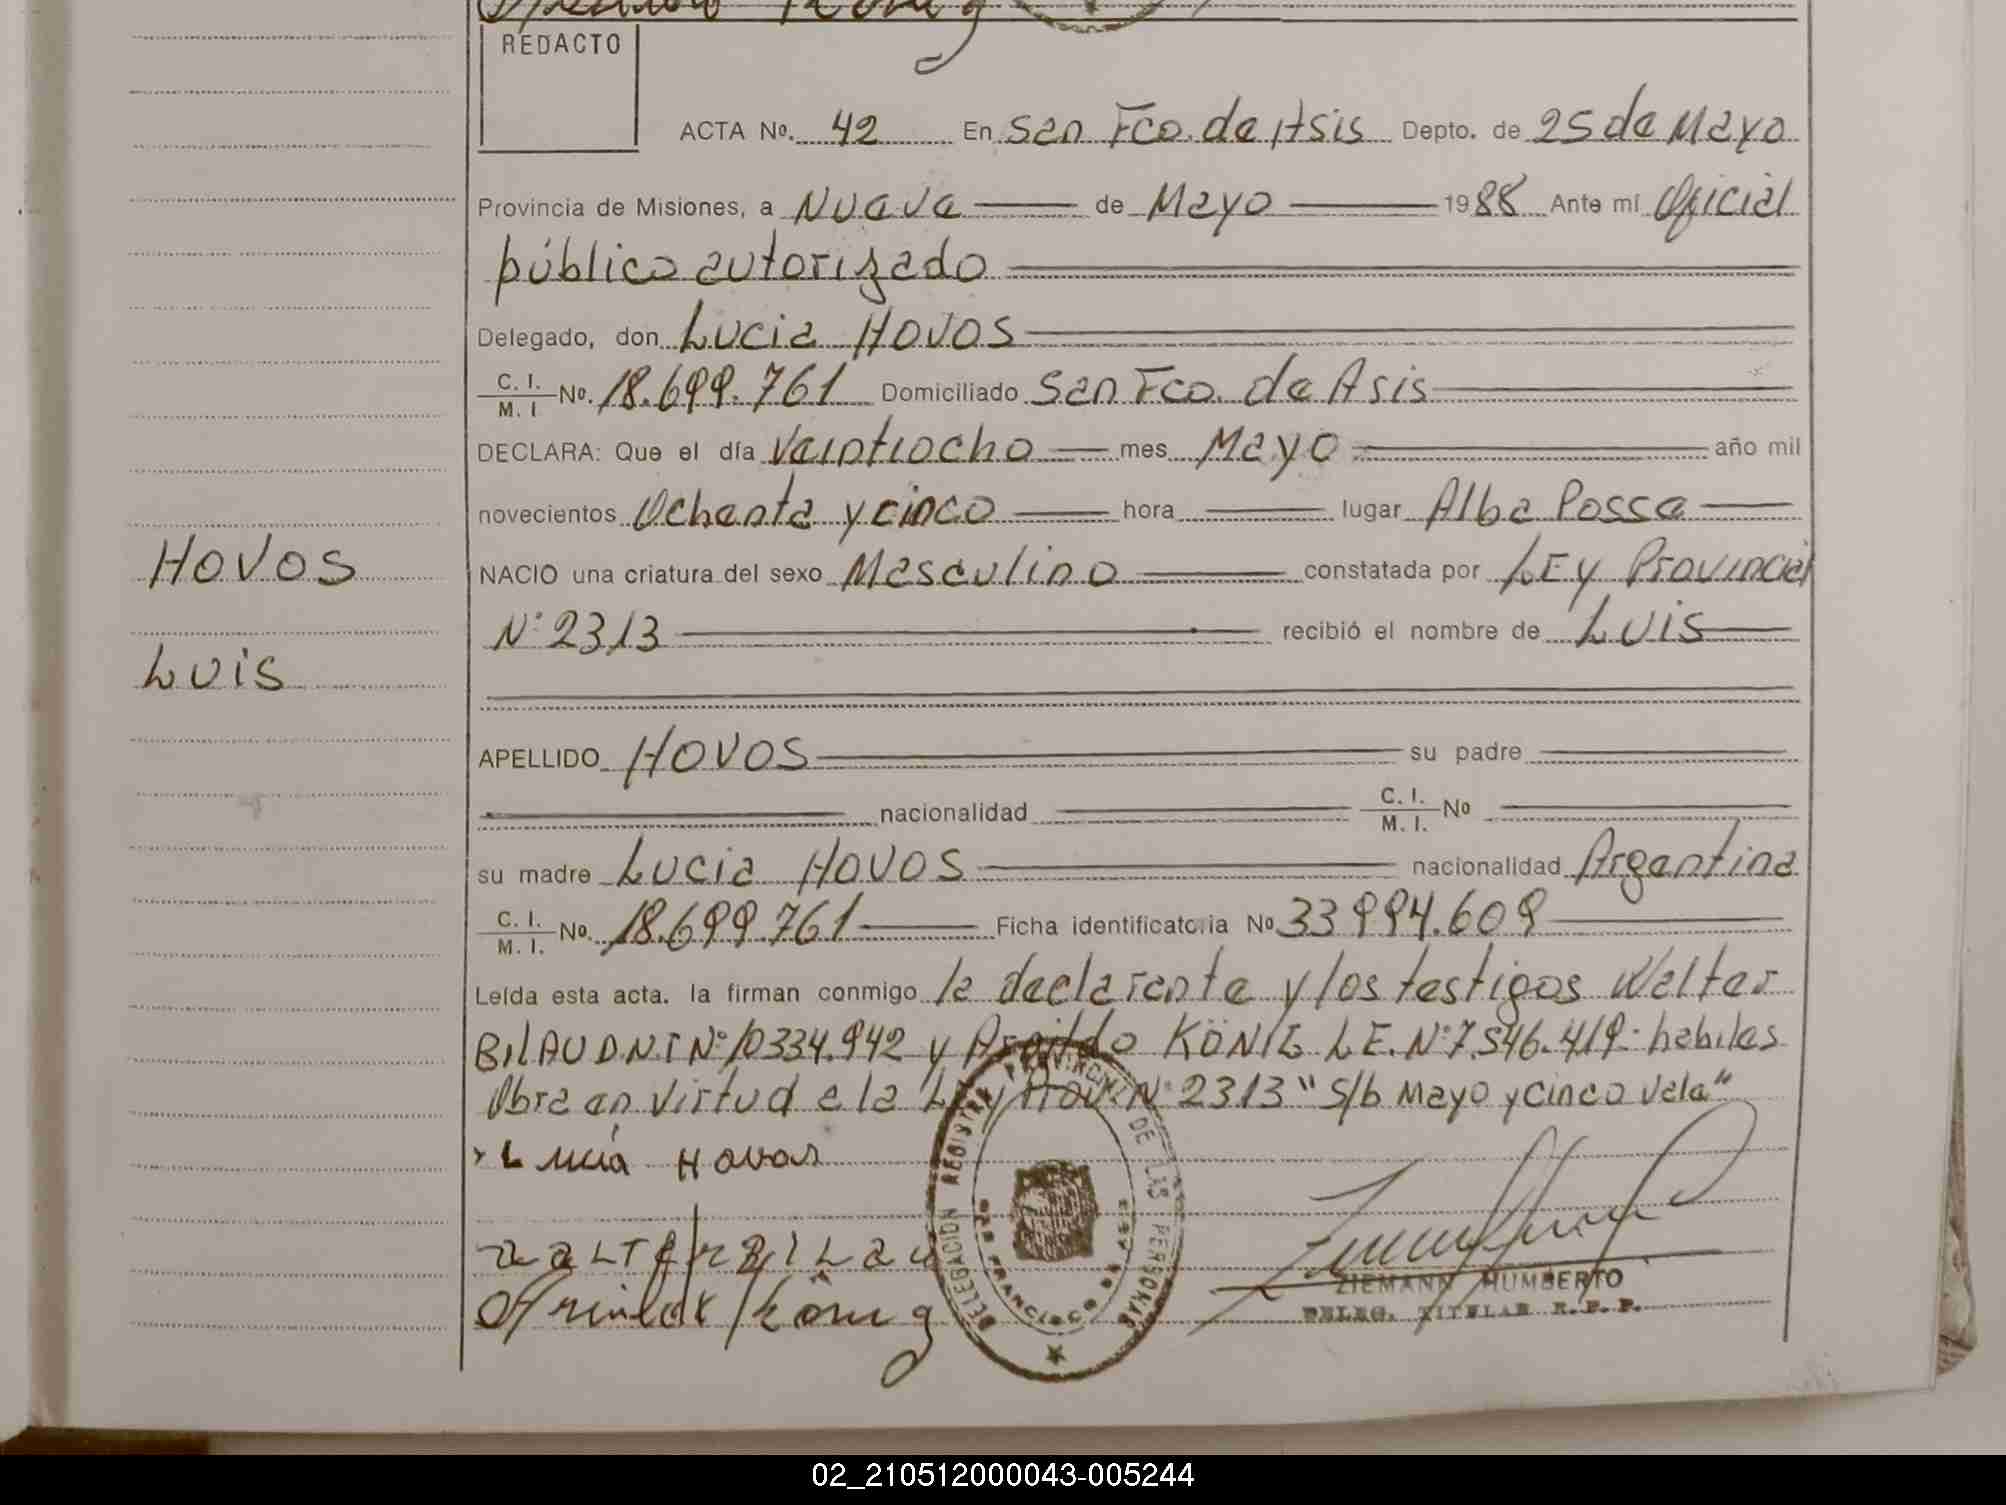 REDACTO
ACTA No. 42 En San Fco. de Asis Depto. de 25 de Mayo
Provincia de Misiones, a Nueve de Mayo 1988 Ante mí Oficial
público autorizado
Delegado, don Lucia HOVOS
C. I. M. I. No. 18.699.761 Domiciliado San Fco. de Asis
DECLARA: Que el día Veintiocho mes Mayo año mil
novecientos Ochenta y cinco hora lugar Alba Posse
HOVOS
NACIO una criatura del sexo Masculino constatada por LEy Provincial
N° 2313 recibió el nombre de Luis
Luis
APELLIDO HOVOS su padre
nacionalidad C. I. M. I. No
su madre Lucia HOVOS nacionalidad Argentina
C. I. M. I. No. 18.699.761 Ficha identificatoria No 33994.609
Leída esta acta. la firman conmigo la declarante y los testigos Walter
BilAU D.N.I N° 10334.942 y Arnildo KÖNIG L.E. N° 7.546.419: habiles
Obra en virtud a la Ley Prov. N° 2313 "S/b Mayo y cinco Vale"
Lucia Hovos
WALTER BILAU
Arnildo König
DELEGACION REGISTRO PROVINCIAL DE LAS PERSONAS
SAN FRANCISCO DE ASIS
ZIEMANN HUMBERTO
DELEG. TITULAR R. P. P.
02_210512000043-005244